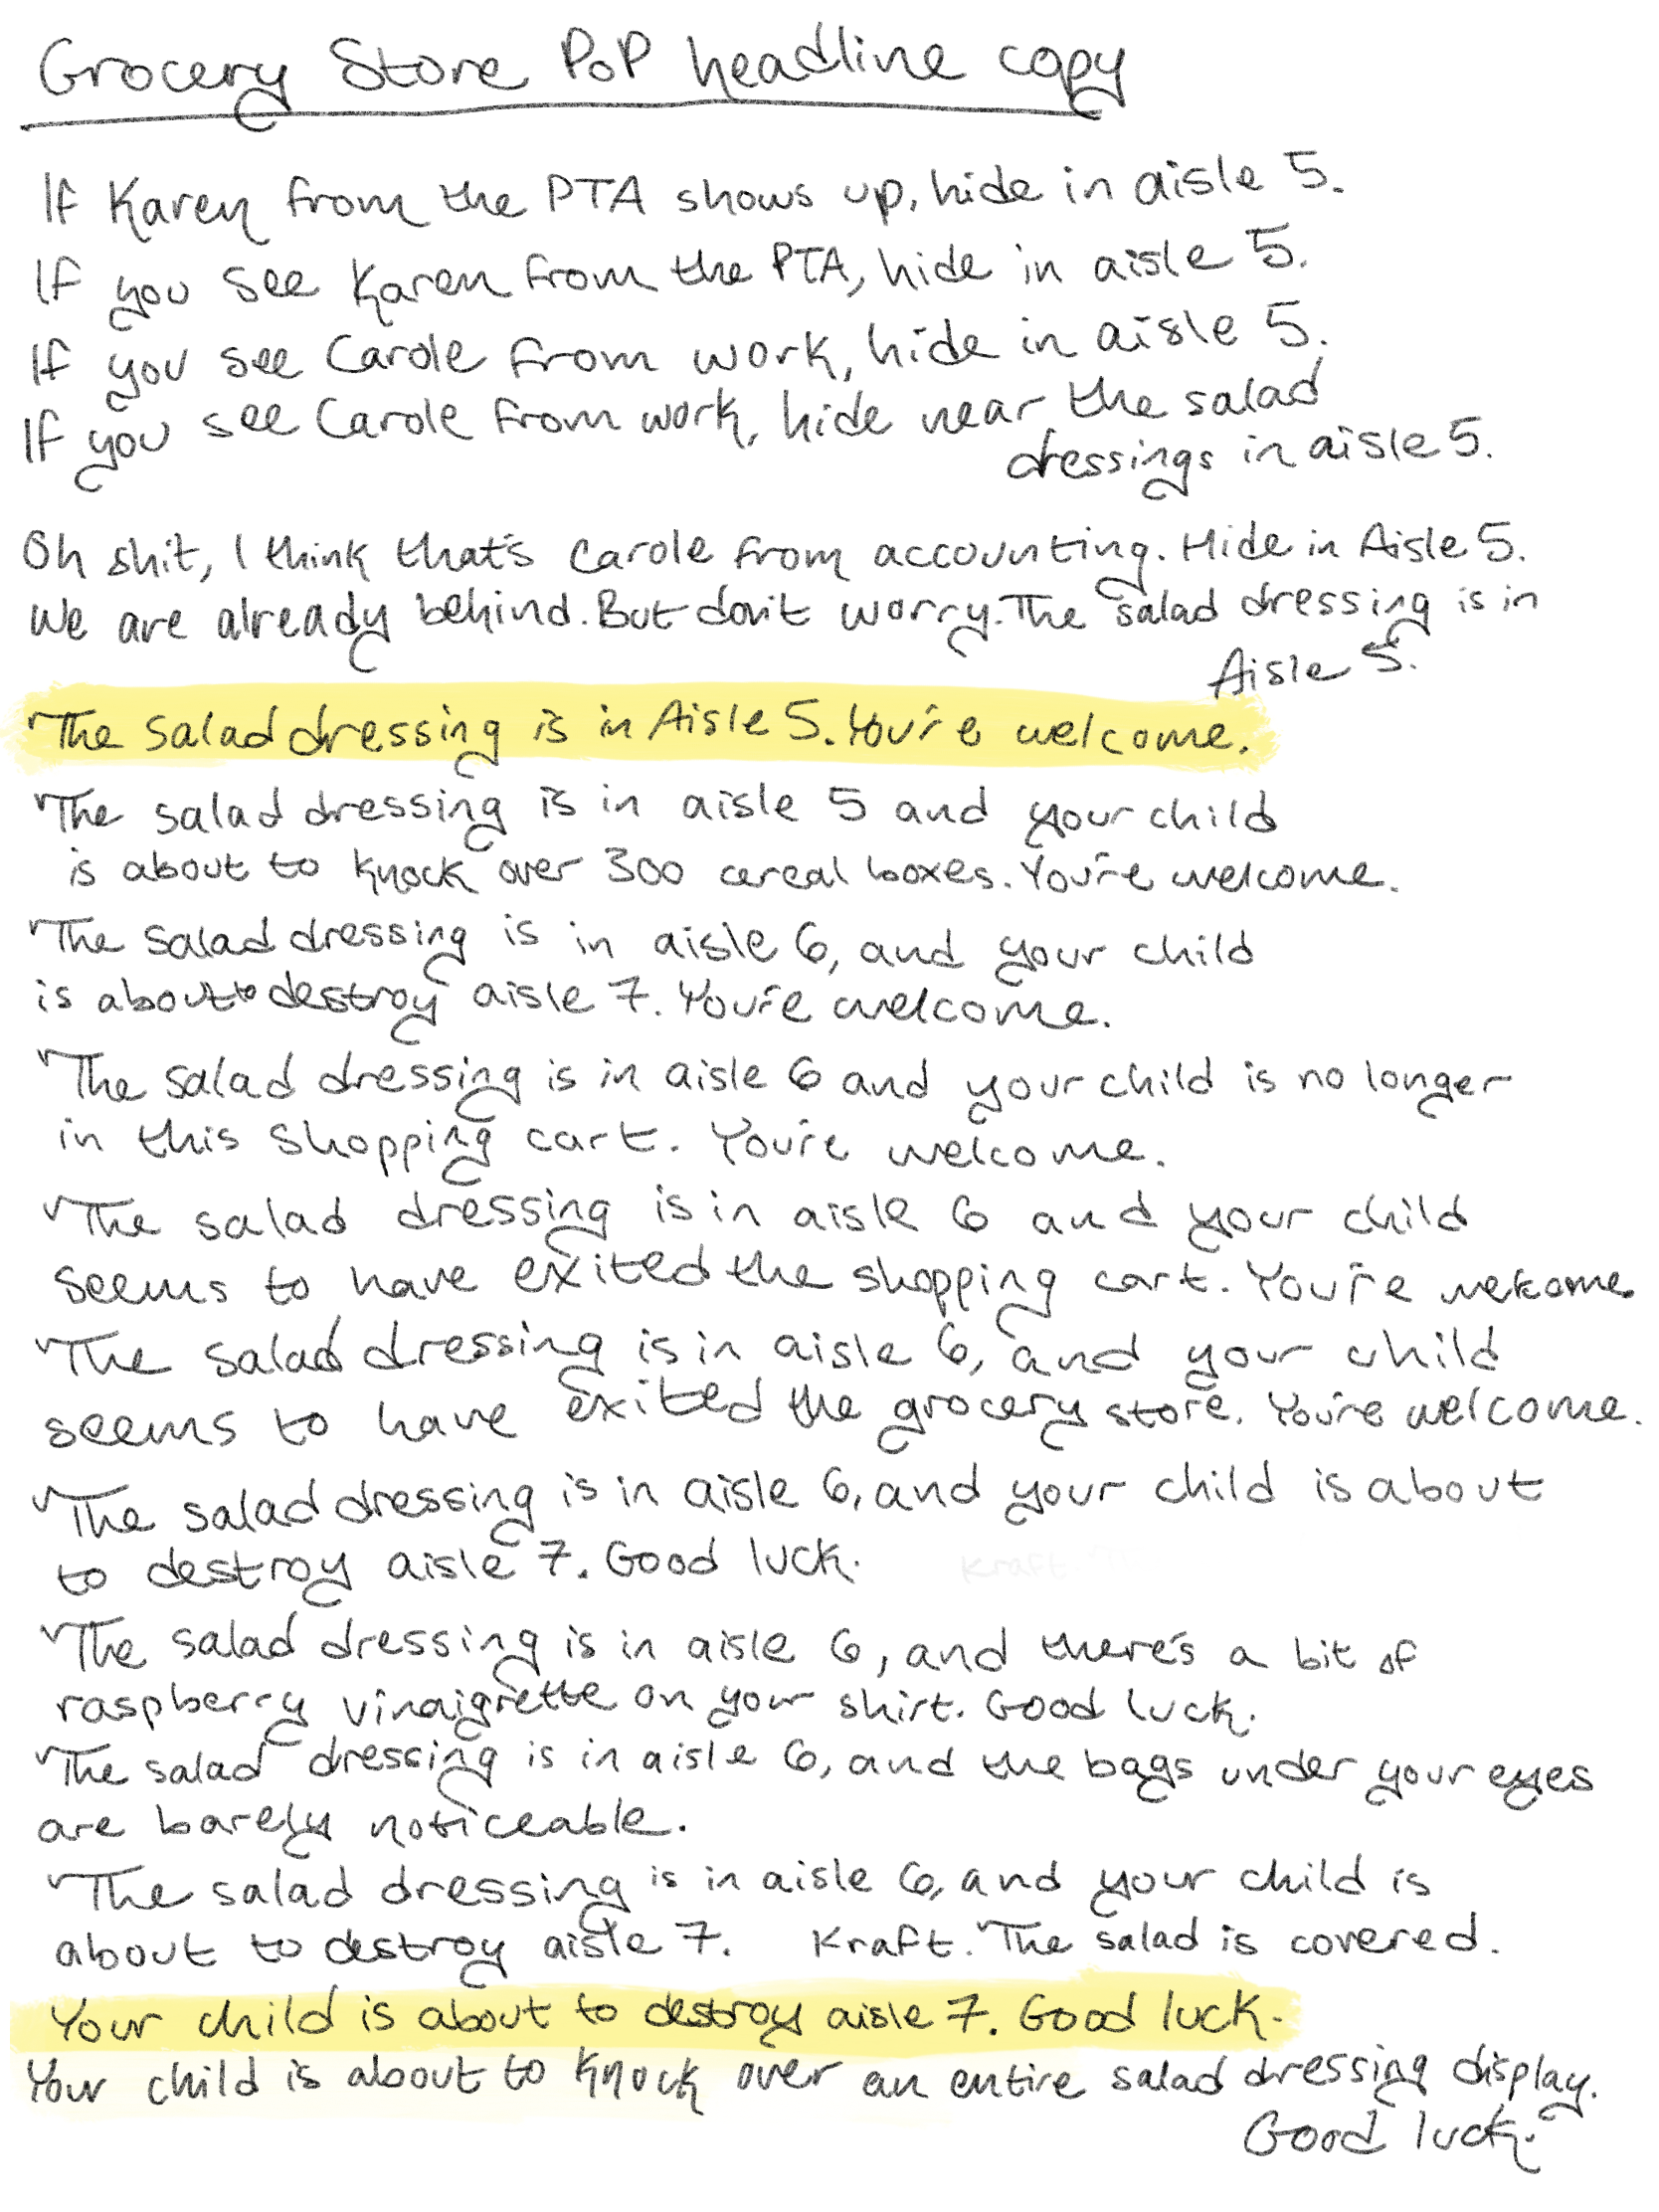 Grocery Store PoP headline copy
If Karen from the PTA shows up, hide in aisle 5.
If you see Karen from the PTA, hide in aisle 5.
If you see Carole from work, hide in aisle 5.
If you see Carole from work, hide near the salad
dressings in aisle 5.
Oh shit, I think that's Carole from accounting. Hide in Aisle 5.
We are already behind. But don't worry. The salad dressing is in
Aisle 5.
The salad dressing is in Aisle 5. You're welcome.
The salad dressing is in aisle 5 and your child
is about to knock over 300 cereal boxes. You're welcome.
The salad dressing is in aisle 6, and your child
is about to destroy aisle 7. You're welcome.
The salad dressing is in aisle 6 and your child is no longer
in this shopping cart. You're welcome.
The salad dressing is in aisle 6 and your child
seems to have exited the shopping cart. You're welcome.
The salad dressing is in aisle 6, and your child
seems to have exited the grocery store. You're welcome.
The salad dressing is in aisle 6, and your child is about
to destroy aisle 7. Good luck. Kraft.
The salad dressing is in aisle 6, and there's a bit of
raspberry vinaigrette on your shirt. Good luck.
The salad dressing is in aisle 6, and the bags under your eyes
are barely noticeable.
The salad dressing is in aisle 6, and your child is
about to destroy aisle 7. Kraft. The salad is covered.
Your child is about to destroy aisle 7. Good luck.
Your child is about to knock over an entire salad dressing display.
Good luck.